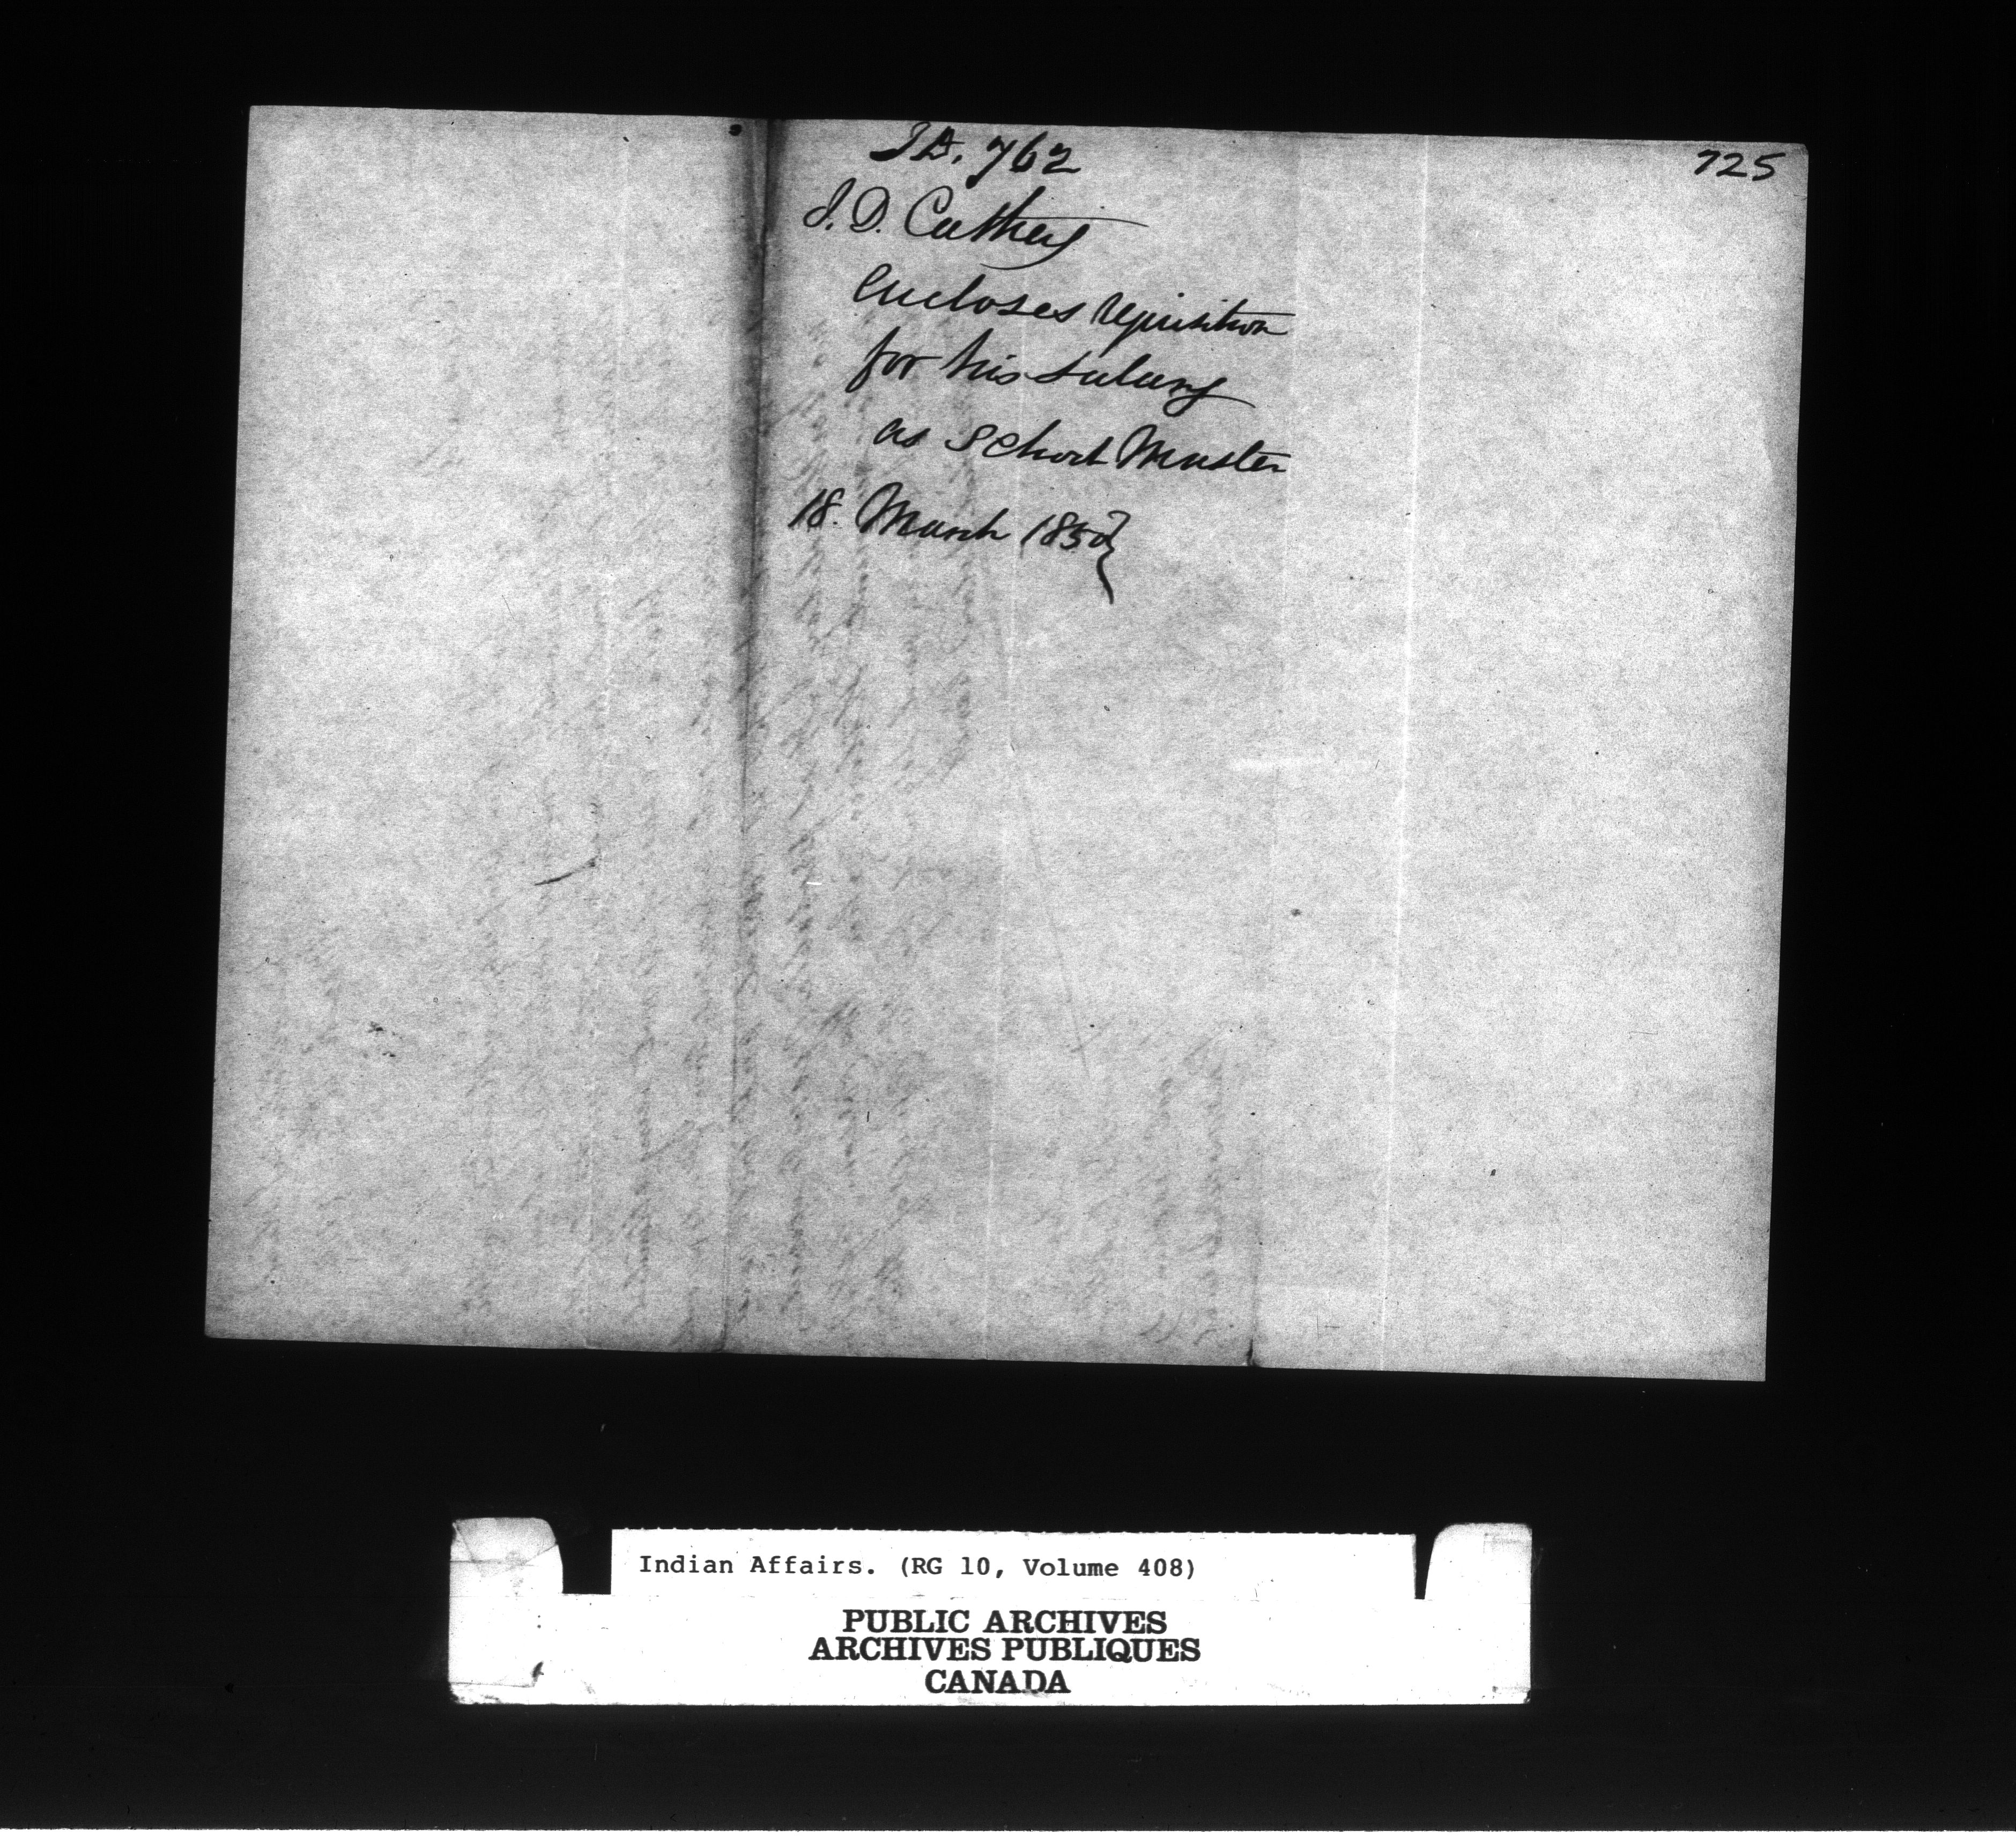 725
I.A. 762
J. D. Cathey
encloses requisition
for his salary
as School Master
18. March 1850
Indian Affairs. (RG 10, Volume 408)
PUBLIC ARCHIVES
ARCHIVES PUBLIQUES
CANADA